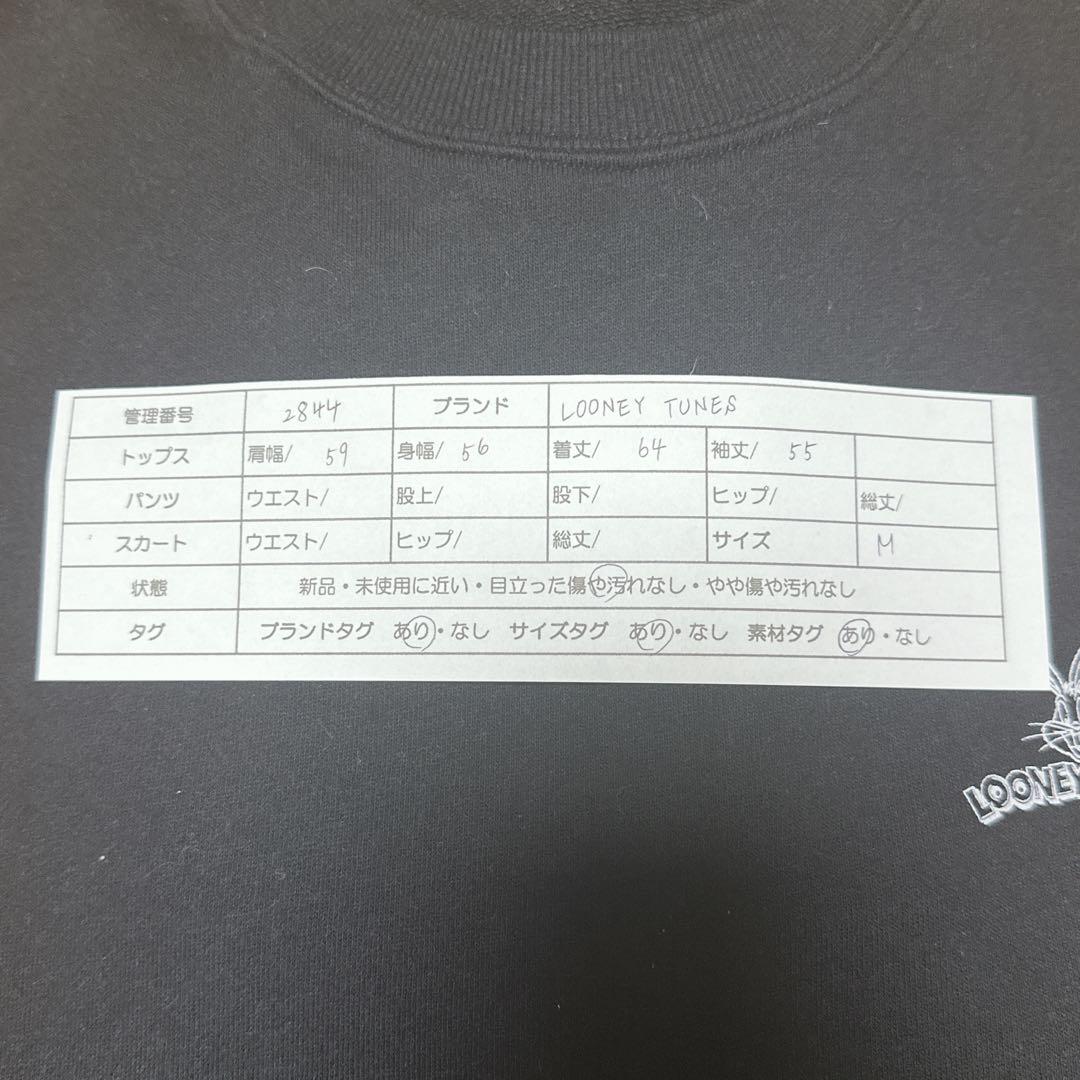 管理番号 2844 ブランド LOONEY TUNES
トップス 肩幅/ 59 身幅/ 56 着丈/ 64 袖丈/ 55
パンツ ウエスト/ 股上/ 股下/ ヒップ/ 総丈/
スカート ウエスト/ ヒップ/ 総丈/ サイズ M
状態 新品・未使用に近い・目立った傷や汚れなし・やや傷や汚れなし
タグ ブランドタグ あり・なし サイズタグ あり・なし 素材タグ あり・なし
LOONEY